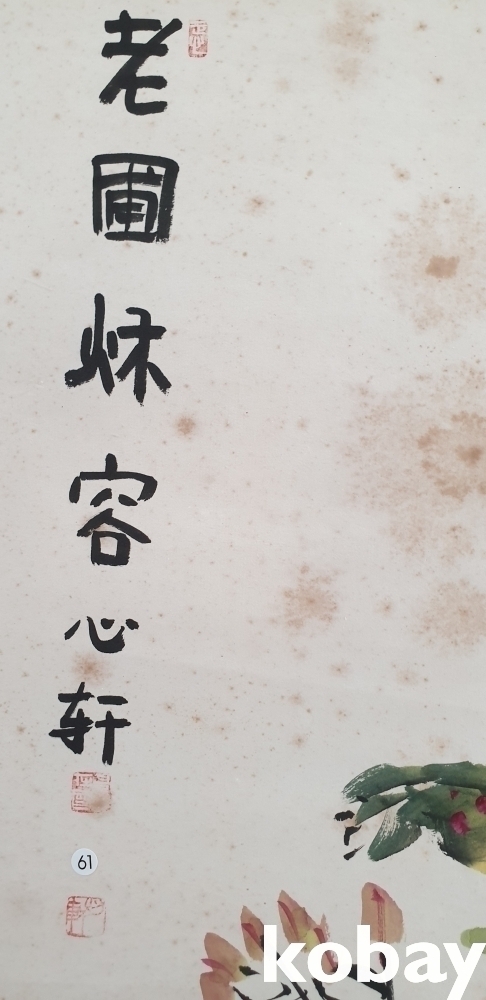 老圃秌容
心轩
61
kobay